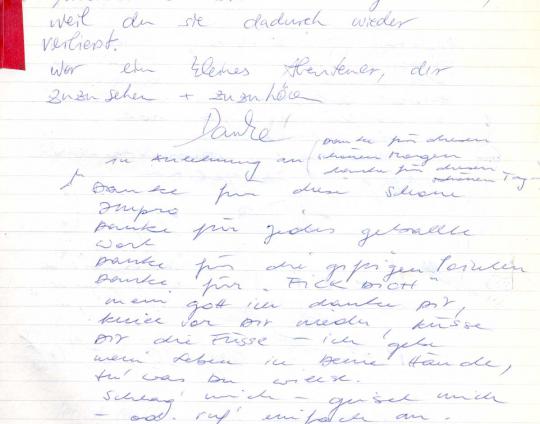 weil du sie dadurch wieder
verlierst.
war ein kleines Abenteuer, dir
zuzusehen + zuzuhören
Danke!
in Anlehnung an (Danke für diesen
schönen Morgen
Danke für diesen
schönen Tag
Danke für diese schöne
Impro
Danke für jedes geballte
Wort
Danke für die giftigen
Danke für "FICK DICH"
mein gott ich danke Dir,
kniee vor Dir nieder, küsse
Dir die Füsse – ich gebe
mein Leben in Deine Hände,
tu' was Du willst.
Schlag' mich – mich
– od. ruf' einfach an.